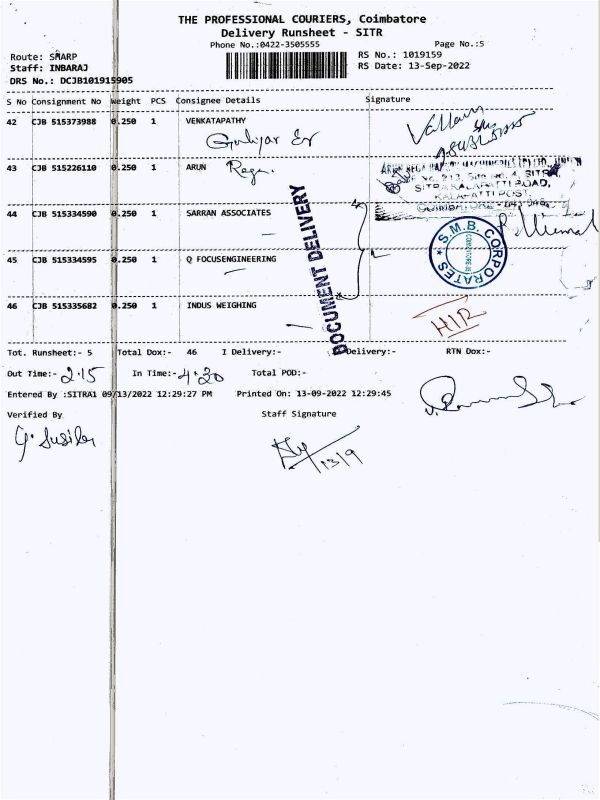 THE PROFESSIONAL COURIERS, Coimbatore
Delivery Runsheet - SITR
Phone No.:0422-3505555
Page No.:5
Route: SHARP
RS No.: 1019159
Staff: INBARAJ
RS Date: 13-Sep-2022
DRS No.: DCJB101915905
S No Consignment No Weight PCS Consignee Details Signature
42 CJB 515373988 0.250 1 VENKATAPATHY
43 CJB 515226110 0.250 1 ARUN
SITRA KALAPATTI ROAD,
KALAPATTI POST,
COIMBATORE - 641 048.
44 CJB 515334590 0.250 1 SARRAN ASSOCIATES
DOCUMENT DELIVERY
S.M.B. CORPORATES
45 CJB 515334595 0.250 1 Q FOCUSENGINEERING
46 CJB 515335682 0.250 1 INDUS WEIGHING
H/R
Tot. Runsheet:- 5 Total Dox:- 46 I Delivery:- Delivery:- RTN Dox:-
Out Time:- 2.15 In Time:- 4.20 Total POD:-
Entered By :SITRA1 09/13/2022 12:29:27 PM Printed On: 13-09-2022 12:29:45
Verified By Staff Signature
13/9